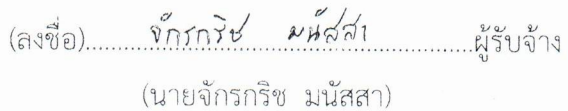 (ลงชื่อ)..........จักรกริช มนัสสา..........ผู้รับจ้าง
(นายจักรกริช มนัสสา)